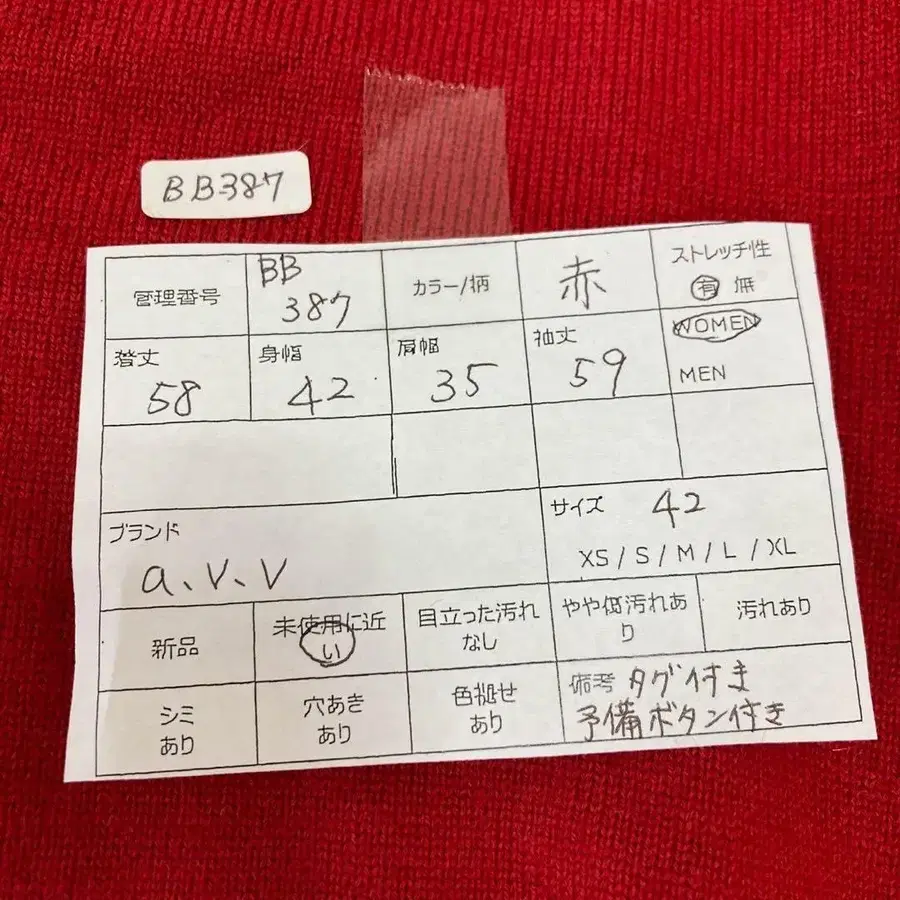 BB387
管理番号
BB
387
カラー/柄
赤
ストレッチ性
有 無
着丈
58
身幅
42
肩幅
35
袖丈
59
WOMEN
MEN
ブランド
a.v.v
サイズ 42
XS / S / M / L / XL
新品
未使用に近
い
目立った汚れ
なし
やや傷汚れあ
り
汚れあり
シミ
あり
穴あき
あり
色褪せ
あり
備考 タグ付き
予備ボタン付き